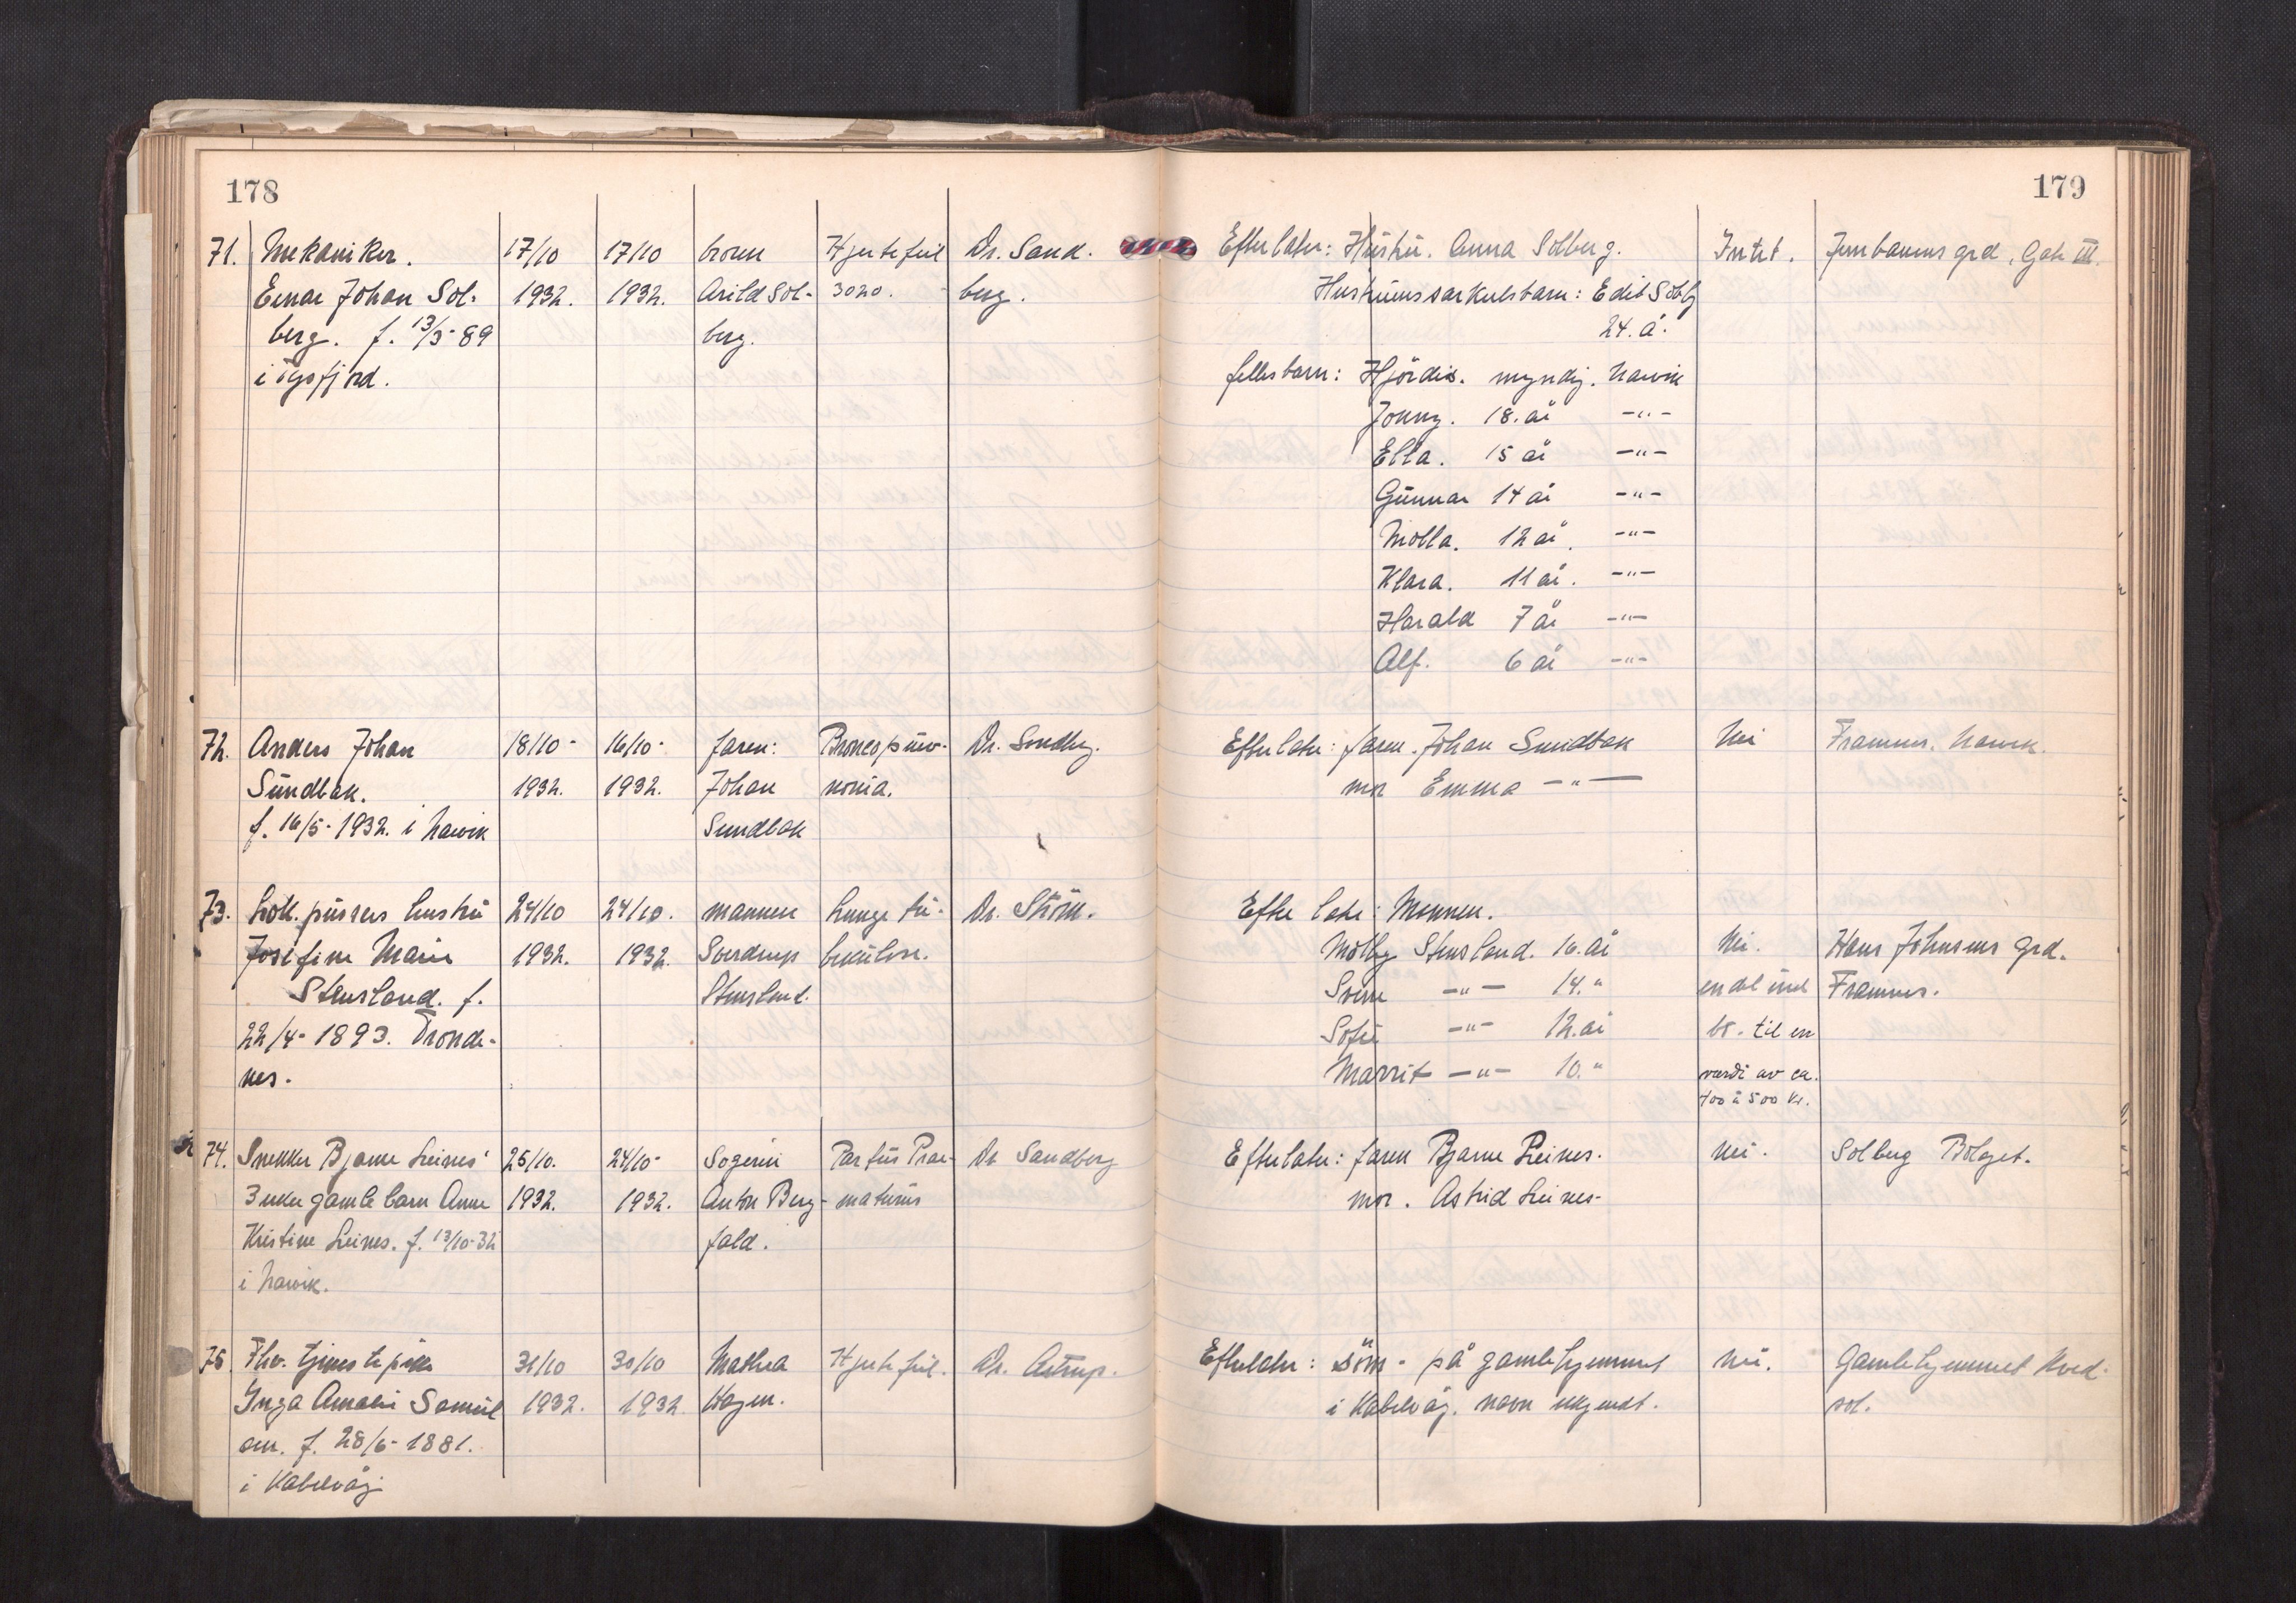 178
71. Mekaniker. 17/10 17/10 broren Hjertefeil Dr. Sand-
Einar Johan Sol- 1932. 1932. Arild Sol- 3020. berg.
berg. f. 13/3-89 berg.
i Tysfjord.
72. Anders Johan 18/10- 16/10- faren: Broncopnev- Dr. Sandbg.
Sundbak. 1932. 1932. Johan monia.
f. 16/5-1932. i Narvik Sundbak
73. Lok. pussers hustru 24/10 24/10. mannen Lunge tu- Dr. Ström.
Josefine Marie 1932. 1932. Sverdrup berkulose.
Stensland. f. Stensland.
22/4-1893. Tronde-
nes.
74. Snekker Bjarne Leines' 25/10. 24/10- Svigerin Partus Prae- Dr Sandberg
3 uker gamle barn Anne 1932. 1932. Anton Berg- maturus
Kristine Leines. f. 13/10-32 fald.
i Narvik.
75. Fhv. tjenestepike 31/10 30/10 Mathea Hjertefeil. Dr. Astrup.
Inga Amalie Samuel 1932. 1932. Hagen.
sen. f. 28/6-1881.
i Kabelvåg
179
Efterlater: Hustru. Anna Solberg. Intet. Jernbanens grd. Gate III.
Hustruens særkulsbarn: Edit Solbg
24. å.
fellesbarn: Hjördis. myndig. Narvik
Jonny. 18. år -"-
Ella. 15 år -"-
Gunnar 14 år -"-
Molla. 12 år. -"-
Klara. 11 år. -"-
Harald 7 år -"-
Alf. 6 år -"-
Efterlater: faren. Johan Sundbak Nei Framnes. Narvik.
mor Emma -"-
Efterlater: Mannen.
Molly Stensland. 16. år Nei. Hans Johnsens grd.
Sverre -"- 14. " en del inn Framnes.
Sofie -"- 12. år bo. til en
Marrit -"- 10. " verdi av ca.
400 à 500 kr.
Efterlater: faren Bjarne Leines. Nei. Solberg Bolaget.
mor. Astrid Leines-
Efterlater: sön - på gamlehjemmet nei. Gamlehjemmet Kved-
i Kabelvåg. navn ukjendt. sol.